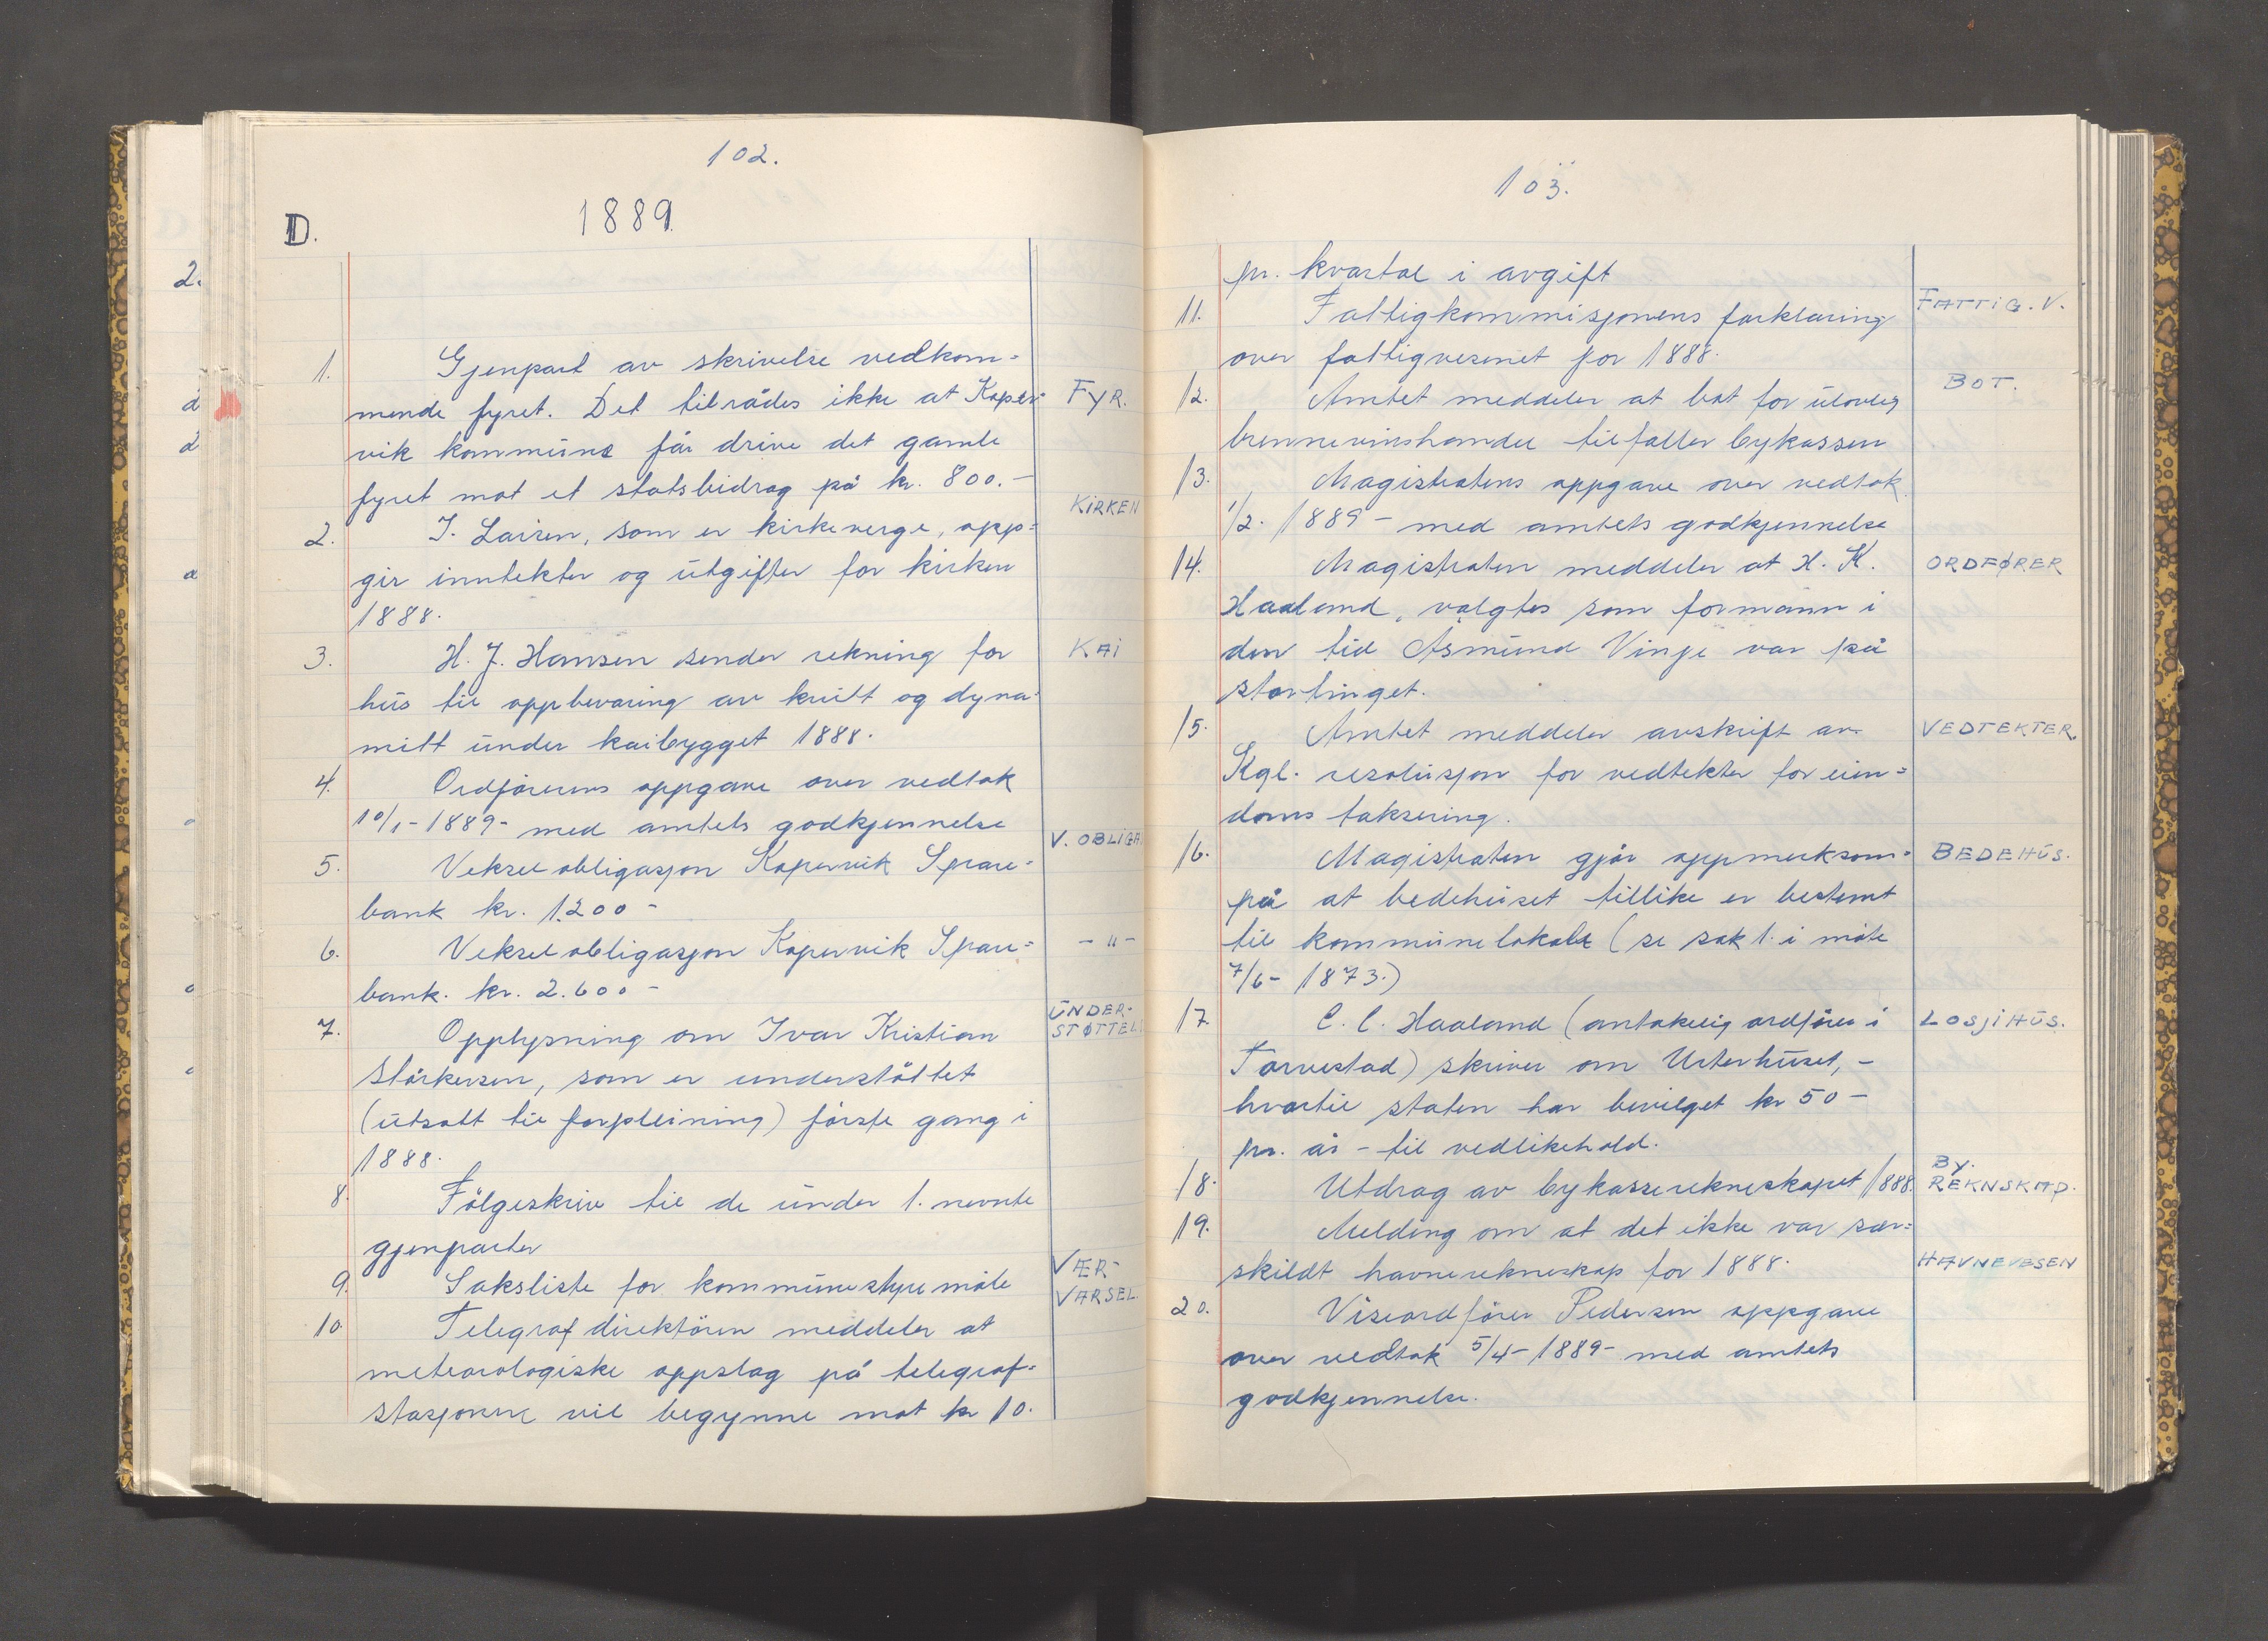 102.
1889.
D.
1. Gjenpart av skrivelse vedkom=
mende fyret. Det tilrådes ikke at Koper= FYR.
vik kommune får drive det gamle
fyret mot et statsbidrag på kr. 800.-
KIRKEN
2. J. Larsen, som er kirkeverge, opp=
gir inntekter og utgifter for kirken
1888.
3. H. J. Hansen sender rekning for KAI
hus til oppbevaring av krutt og dyna=
mitt under kaibygget 1888.
4. Ordførerens oppgave over vedtak
10/1-1889- med amtets godkjennelse
V. OBLIGA
5. Veksel obligasjon Kopervik Spare=
bank kr. 1200-
6. Veksel obligasjon Kopervik Spare= -"-
bank. kr. 2.600-
UNDER-
7. Opplysning om Ivar Kristian STØTTEL
Størkersen, som er understøttet
(utsatt til forpleining) første gang i
1888.
8. Følgeskriv til de under 1. nevnte
gjenparter
VÆR-
9. Saksliste for kommunestyremøte VARSEL.
10 Telegraf direktøren meddeler at
meteorologiske oppslag på telegraf=
stasjonene vil begynne mot kr 10.
103.
pr. kvartal i avgift
11. Fattigkommisjonens forklaring FATTIG.V.
over fattigvesenet for 1888.
12. Amtet meddeler at bot for ulovlig BOT.
brennevinshandel tilfaller bykassen
13. Magistratens oppgave over vedtak
1/2. 1889- med amtets godkjennelse
14. Magistraten meddeler at H. K. ORDFØRER
Haaland, valgtes som formann i
den tid Asmund Vinje var på
stortinget.
15. Amtet meddeler avskrift av VEDTEKTER.
Kgl. resolusjon for vedtekter for eien=
doms taksering.
16. Magistraten gjør oppmerksom= BEDEHUS.
på at bedehuset tillike er bestemt
til kommunelokale (se sak 1. i møte
7/6- 1873.)
17. C. C. Haaland (antakelig ordfører i LOSJIHUS.
Torvestad) skriver om Urterhuset,-
hvortil staten har bevilget kr 50-
pr. år - til vedlikehold.
BY.
18. Utdrag av bykasserekneskapet 1888. REKNSKAP.
19. Melding om at det ikke var sær=
skildt havnerekneskap for 1888. HAVNEVESEN
20. Viseordfører Pedersen oppgave
over vedtak 5/4-1889- med amtets
godkjennelse.